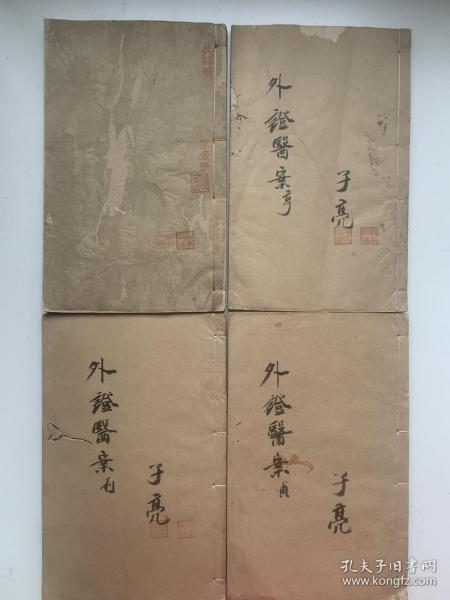 外證醫案亨
子亮
外證醫案利
子亮
外證醫案貞
子亮
孔夫子旧书网
www.kongfz.com